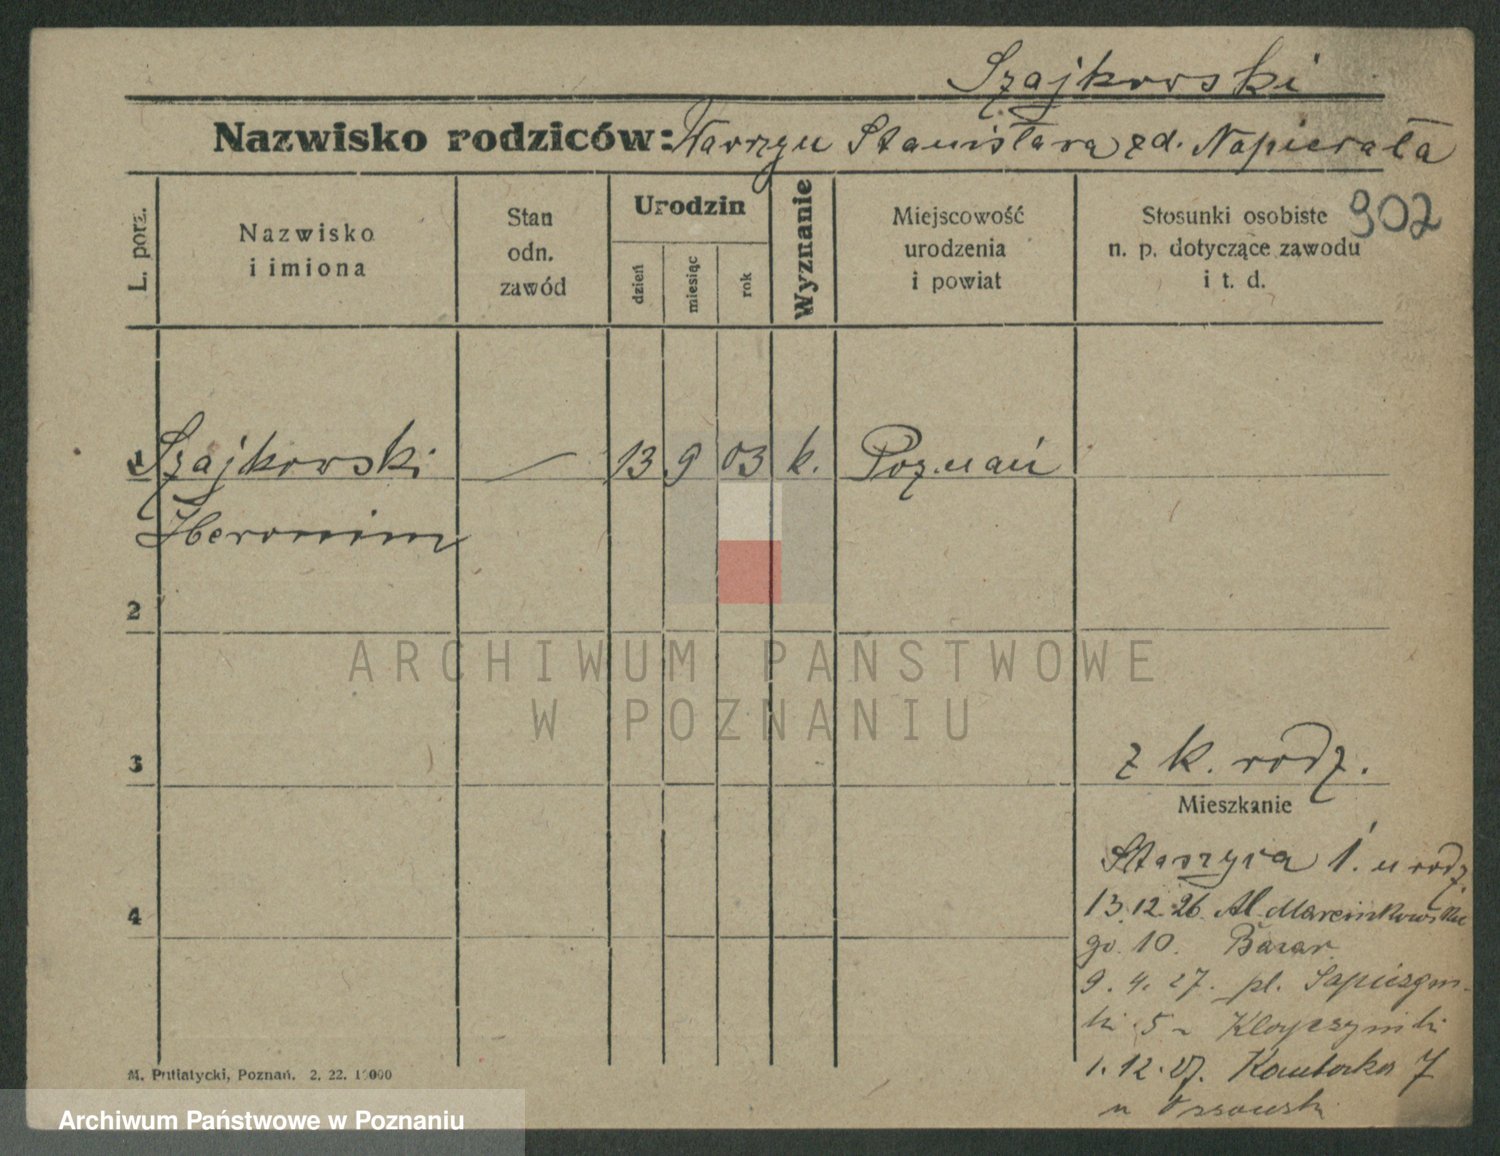 Szajkowski
Nazwisko rodziców: Wawrzyn Stanisława zd. Napierała
902
L. porz.
Nazwisko
i imiona
Stan
odn.
zawód
Urodzin
dzień
miesiąc
rok
Wyznanie
Miejscowość
urodzenia
i powiat
Stosunki osobiste
n. p. dotyczące zawodu
i t. d.
1 Szajkowski — 13 9 03 k. Poznań
Heronim
2
ARCHIWUM PAŃSTWOWE
W POZNANIU
3
z k. rodz.
Mieszkanie
Staszyca 1. u rodz.
13.12.26. Al. Marcinkowskie
go. 10. Bazar.
4
9. 4. 27. pl. Sapieżyń-
ki 5
1. 12. 27. Kantorka 7
u
M. Putiatycki, Poznań. 2. 22. 10000
Archiwum Państwowe w Poznaniu